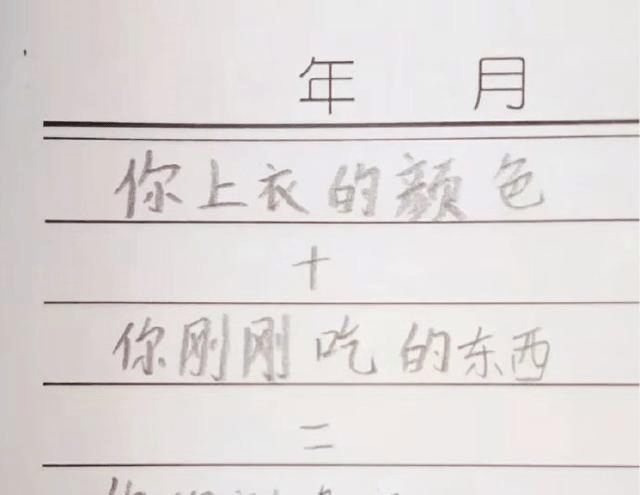 年 月
你上衣的颜色
+
你刚刚吃的东西
=